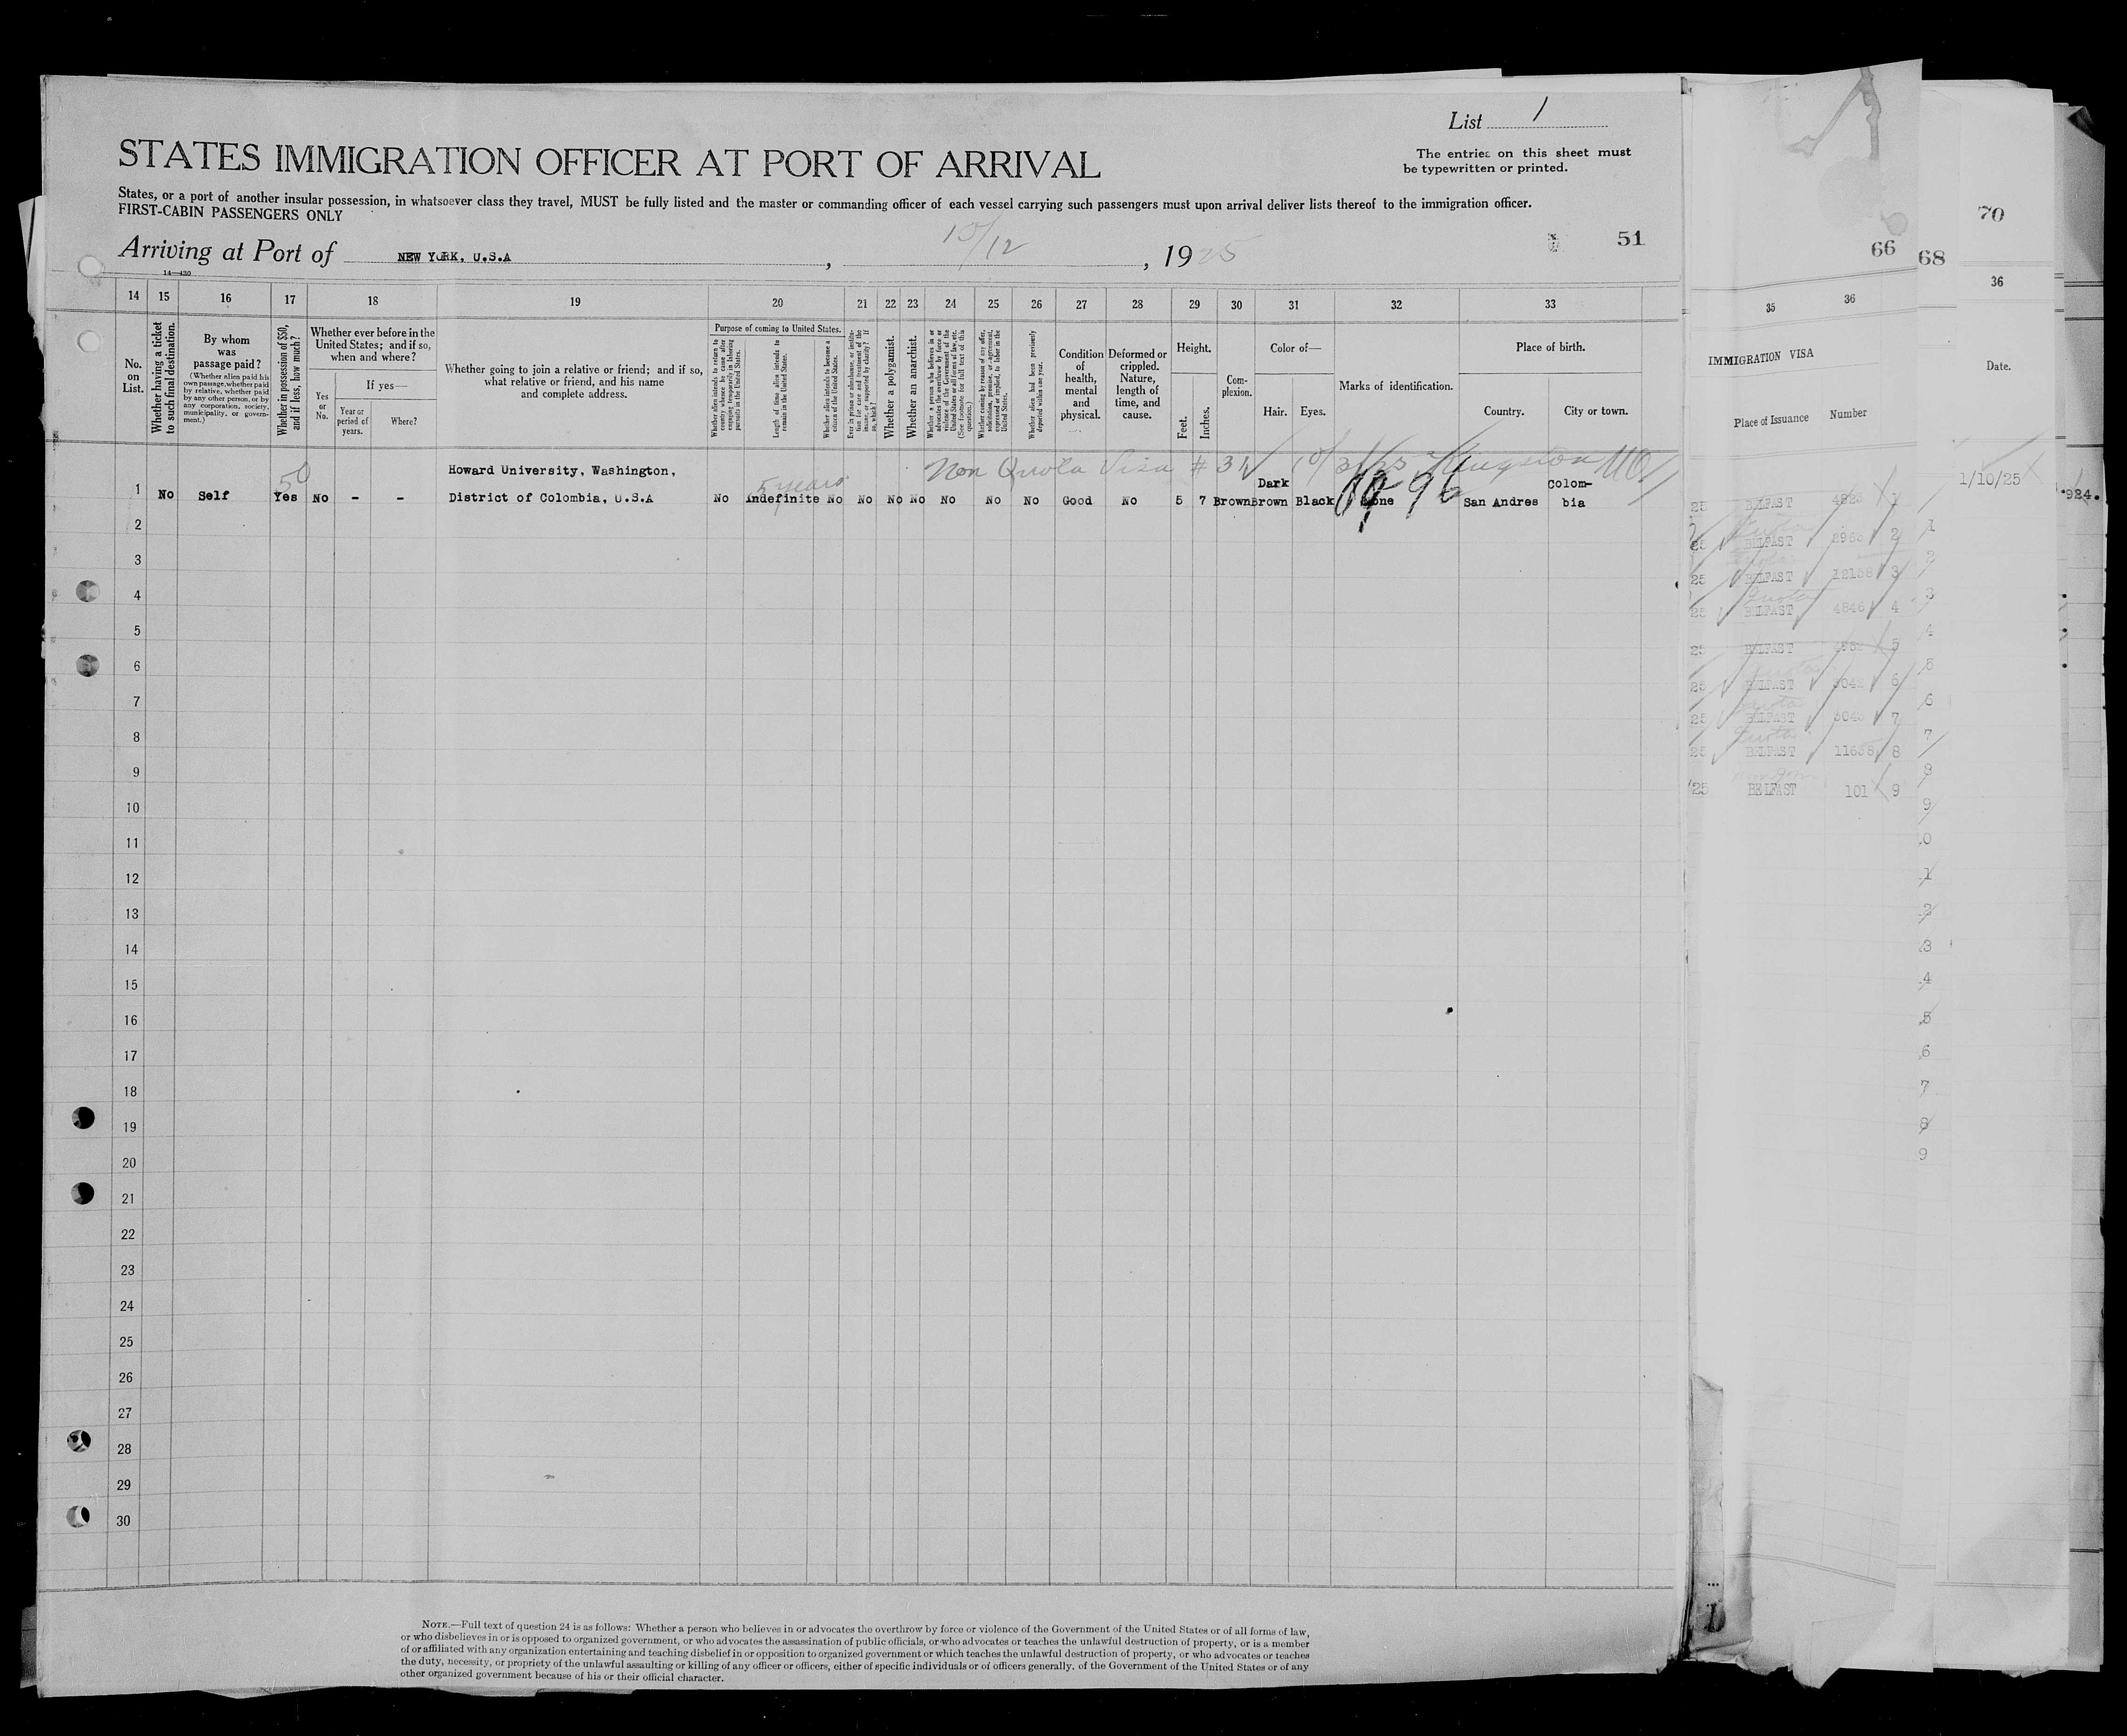 List 1
STATES IMMIGRATION OFFICER AT PORT OF ARRIVAL
The entries on this sheet must
be typewritten or printed.
States, or a port of another insular possession, in whatsoever class they travel, MUST be fully listed and the master or commanding officer of each vessel carrying such passengers must upon arrival deliver lists thereof to the immigration officer.
FIRST-CABIN PASSENGERS ONLY
Arriving at Port of NEW YORK, U.S.A , 10/12 , 1925
51
14—430
14 15 16 17 18 19 20 21 22 23 24 25 26 27 28 29 30 31 32 33
No. on List.
Whether having a ticket to such final destination.
By whom was passage paid?
(Whether alien paid his own passage, whether paid by relative, whether paid by any other person, or by any corporation, society, municipality, or government.)
Whether in possession of $50, and if less, how much?
Whether ever before in the United States; and if so, when and where?
Yes or No.
If yes—
Year or period of years.
Where?
Whether going to join a relative or friend; and if so, what relative or friend, and his name and complete address.
Purpose of coming to United States.
Whether alien intends to return to country whence he came after engaging temporarily in laboring pursuits in the United States.
Length of time alien intends to remain in the United States.
Whether alien intends to become a citizen of the United States.
Ever in prison or almshouse, or institution for care and treatment of the insane, or supported by charity? If so, which?
Whether a polygamist.
Whether an anarchist.
Whether a person who believes in or advocates the overthrow by force or violence of the Government of the United States or all forms of law, etc. (See footnote for full text of this question.)
Whether coming by reason of any offer, solicitation, promise, or agreement, expressed or implied, to labor in the United States.
Whether alien had been previously deported within one year.
Condition of health, mental and physical.
Deformed or crippled. Nature, length of time, and cause.
Height.
Feet.
Inches.
Complexion.
Color of—
Hair.
Eyes.
Marks of identification.
Place of birth.
Country.
City or town.
50
Howard University, Washington,
5 years
Non Quota Visa # 31 10/3/25 Kingston
1 No Self Yes No - - District of Colombia, U.S.A No Indefinite No No No No No No No Good No 5 7 Brown Dark Brown Black None San Andres Colom-
bia
2
3
4
5
6
7
8
9
10
11
12
13
14
15
16
17
18
19
20
21
22
23
24
25
26
27
28
29
30
NOTE.—Full text of question 24 is as follows: Whether a person who believes in or advocates the overthrow by force or violence of the Government of the United States or of all forms of law,
or who disbelieves in or is opposed to organized government, or who advocates the assassination of public officials, or who advocates or teaches the unlawful destruction of property, or is a member
of or affiliated with any organization entertaining and teaching disbelief in or opposition to organized government or which teaches the unlawful destruction of property, or who advocates or teaches
the duty, necessity, or propriety of the unlawful assaulting or killing of any officer or officers, either of specific individuals or of officers generally, of the Government of the United States or of any
other organized government because of his or their official character.
66
35 36
IMMIGRATION VISA
Place of Issuance Number
25 BELFAST 1
25 BELFAST 2
25 BELFAST 12138 3
25 BELFAST 4846 4
25 BELFAST 5
25 BELFAST 6
25 BELFAST 7
25 BELFAST 8
25 BELFAST 101 9
68
70
36
Date.
1/10/25
924.